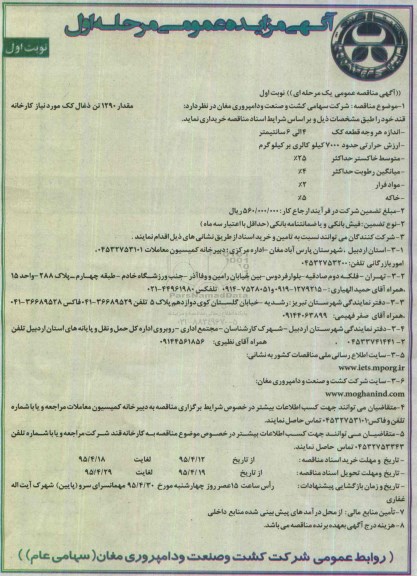 آگهی مزایده عمومی مرحله اول
نوبت اول
((آگهی مناقصه عمومی یک مرحله ای)) نوبت اول
۱-موضوع مناقصه : شرکت سهامی کشت و صنعت و دامپروری مغان در نظر دارد: مقدار ۱۲۹۰ تن ذغال کک مورد نیاز کارخانه
قند خود را طبق مشخصات ذیل و بر اساس شرایط اسناد مناقصه خریداری نماید.
-اندازه هر وجه قطعه کک ۴ الی ۶ سانتیمتر
-ارزش حرارتی حدود ۷۰۰۰ کیلو کالری بر کیلو گرم
-متوسط خاکستر حداکثر ۲۵٪
-میانگین رطوبت حداکثر ۴٪
-مواد فرار ۲٪
-خاکه ۵٪
۲-مبلغ تضمین شرکت در فرآیند ارجاع کار : ۵۶۰/۰۰۰/۰۰۰ ریال
۲-نوع تضمین: فیش بانکی و یا ضمانتنامه بانکی (حداقل با اعتبار سه ماه)
۳-شرکت کنندگان می توانند نسبت به تامین و خرید اسناد از طریق نشانی های ذیل اقدام نمایند .
۳-۱- استان اردبیل ،شهرستان پارس آباد مغان -اداره مرکزی : دبیرخانه کمیسیون معاملات ۰۴۵۳۲۷۵۳۱۰۱
امور بازرگانی تلفن: ۰۴۵۳۲۷۵۳۲۰۰
۳-۲- تهران - فلکه دوم صادقیه -بلوار فردوس -بین خیابان رامین و وفا آذر -جنب ورزشگاه خادم - طبقه چهارم -پلاک ۳۸۸ -واحد ۱۵
همراه آقای حمید الهیاری : ۰۹۱۹۰۱۲۷۹۲۱۵ و ۰۹۱۴۰۷۵۳۸۰۵۱ تلفکس ۴۴۹۶۱۹۸۰-۰۲۱
۳-۳-دفتر نمایندگی شهرستان تبریز: رشدیه -خیابان گلستان کوی دوازدهم پلاک ۵ تلفن ۳۶۶۸۹۵۲۹-۰۴۱ فاکس ۳۶۶۸۹۵۲۸-۰۴۱
همراه آقای صفر فهیمی: ۰۹۱۴۴۰۶۳۸۹۹
۳-۴- دفتر نمایندگی شهرستان اردبیل -شهرک کارشناسان -مجتمع اداری -روبروی اداره کل حمل و نقل و پایانه های استان اردبیل تلفن
۰۴۵۳۳۷۴۱۴۴۱-۲ همراه آقای نظیری: ۰۹۱۴۴۵۶۱۸۵۶
۳-۵-سایت اطلاع رسانی ملی مناقصات کشور به نشانی:
www.iets.mporg.ir
۳-۶- سایت شرکت کشت و صنعت و دامپروری مغان:
www.moghanind.com
۴-متقاضیان می توانند جهت کسب اطلاعات بیشتر در خصوص شرایط برگزاری مناقصه به دبیرخانه کمیسیون معاملات مراجعه و یا با شماره
تلفن و فاکس ۰۴۵۳۲۷۵۳۱۰۱ تماس حاصل نمایند.
۵-متقاضیان می توانند جهت کسب اطلاعات بیشتر در خصوص موضوع مناقصه به کارخانه قند شرکت مراجعه و یا با شماره تلفن
۰۴۵۳۲۷۵۳۳۴۳ تماس حاصل نمایند.
- تاریخ و مهلت خرید اسناد مناقصه: از تاریخ ۹۵/۴/۱۲ لغایت ۹۵/۴/۱۸
- تاریخ ومهلت تحویل اسناد مناقصه: از تاریخ ۹۵/۴/۱۹ لغایت ۹۵/۴/۲۹
- تاریخ و زمان بازگشایی پیشنهادات: رأس ساعت ۱۵ عصر روز چهارشنبه مورخ ۹۵/۴/۳۰ مهمانسرای سرو (پایین) شهرک آیت اله
غفاری
۷-تأمین منابع مالی: از محل درآمد های پیش بینی شده منابع داخلی
۸-هزینه درج آگهی بعهده برنده مناقصه می باشد.
( روابط عمومی شرکت کشت وصنعت ودامپروری مغان(سهامی عام))